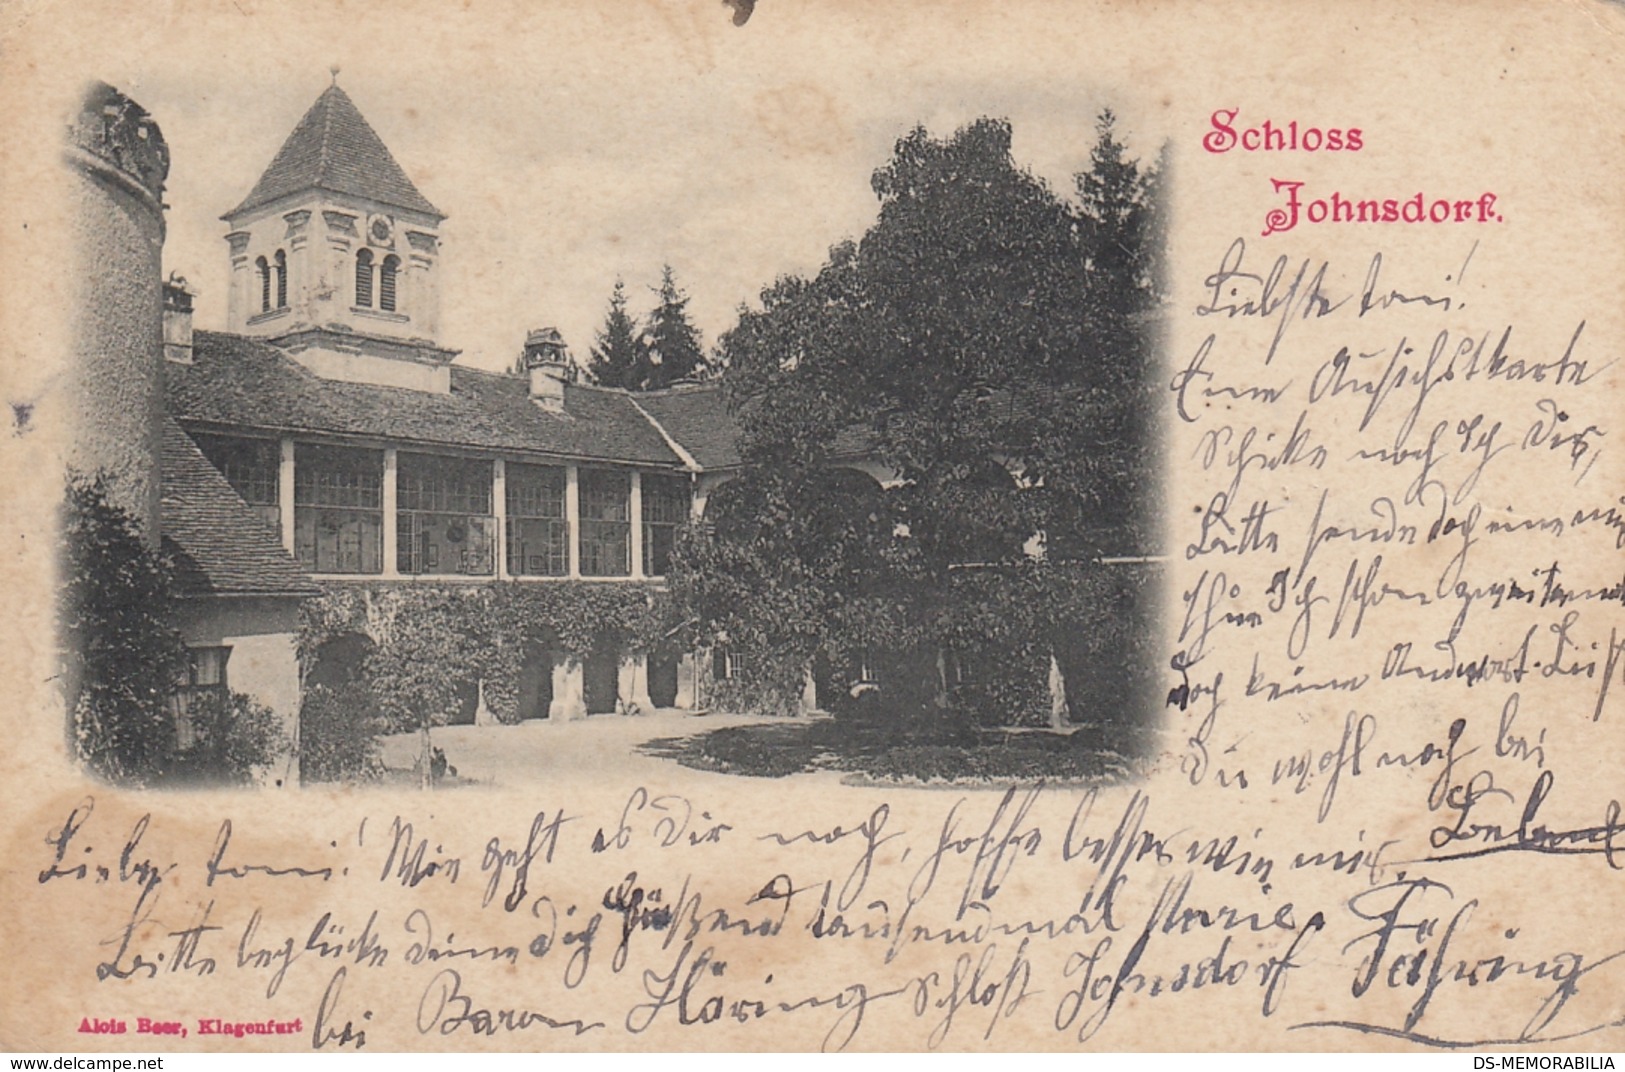 Schloss
Johnsdorf.
Liebste Toni!
Eine Ansichtskarte
Schicke noch Ich Dir,
Bitte sende doch eine mir
Ich schon zweitemal
doch keine Andwort. Bist
Du wohl noch bei
Leben
Liebe Toni! Wie geht es Dir noch, hoffe besser wie mir.
Bitte beglücke deine dich Grüßend tausendmal Marie.
bei Baron Häring Schloß Johnsdorf Fehring
Alois Beer, Klagenfurt
delcampe.net
DS-MEMORABILIA